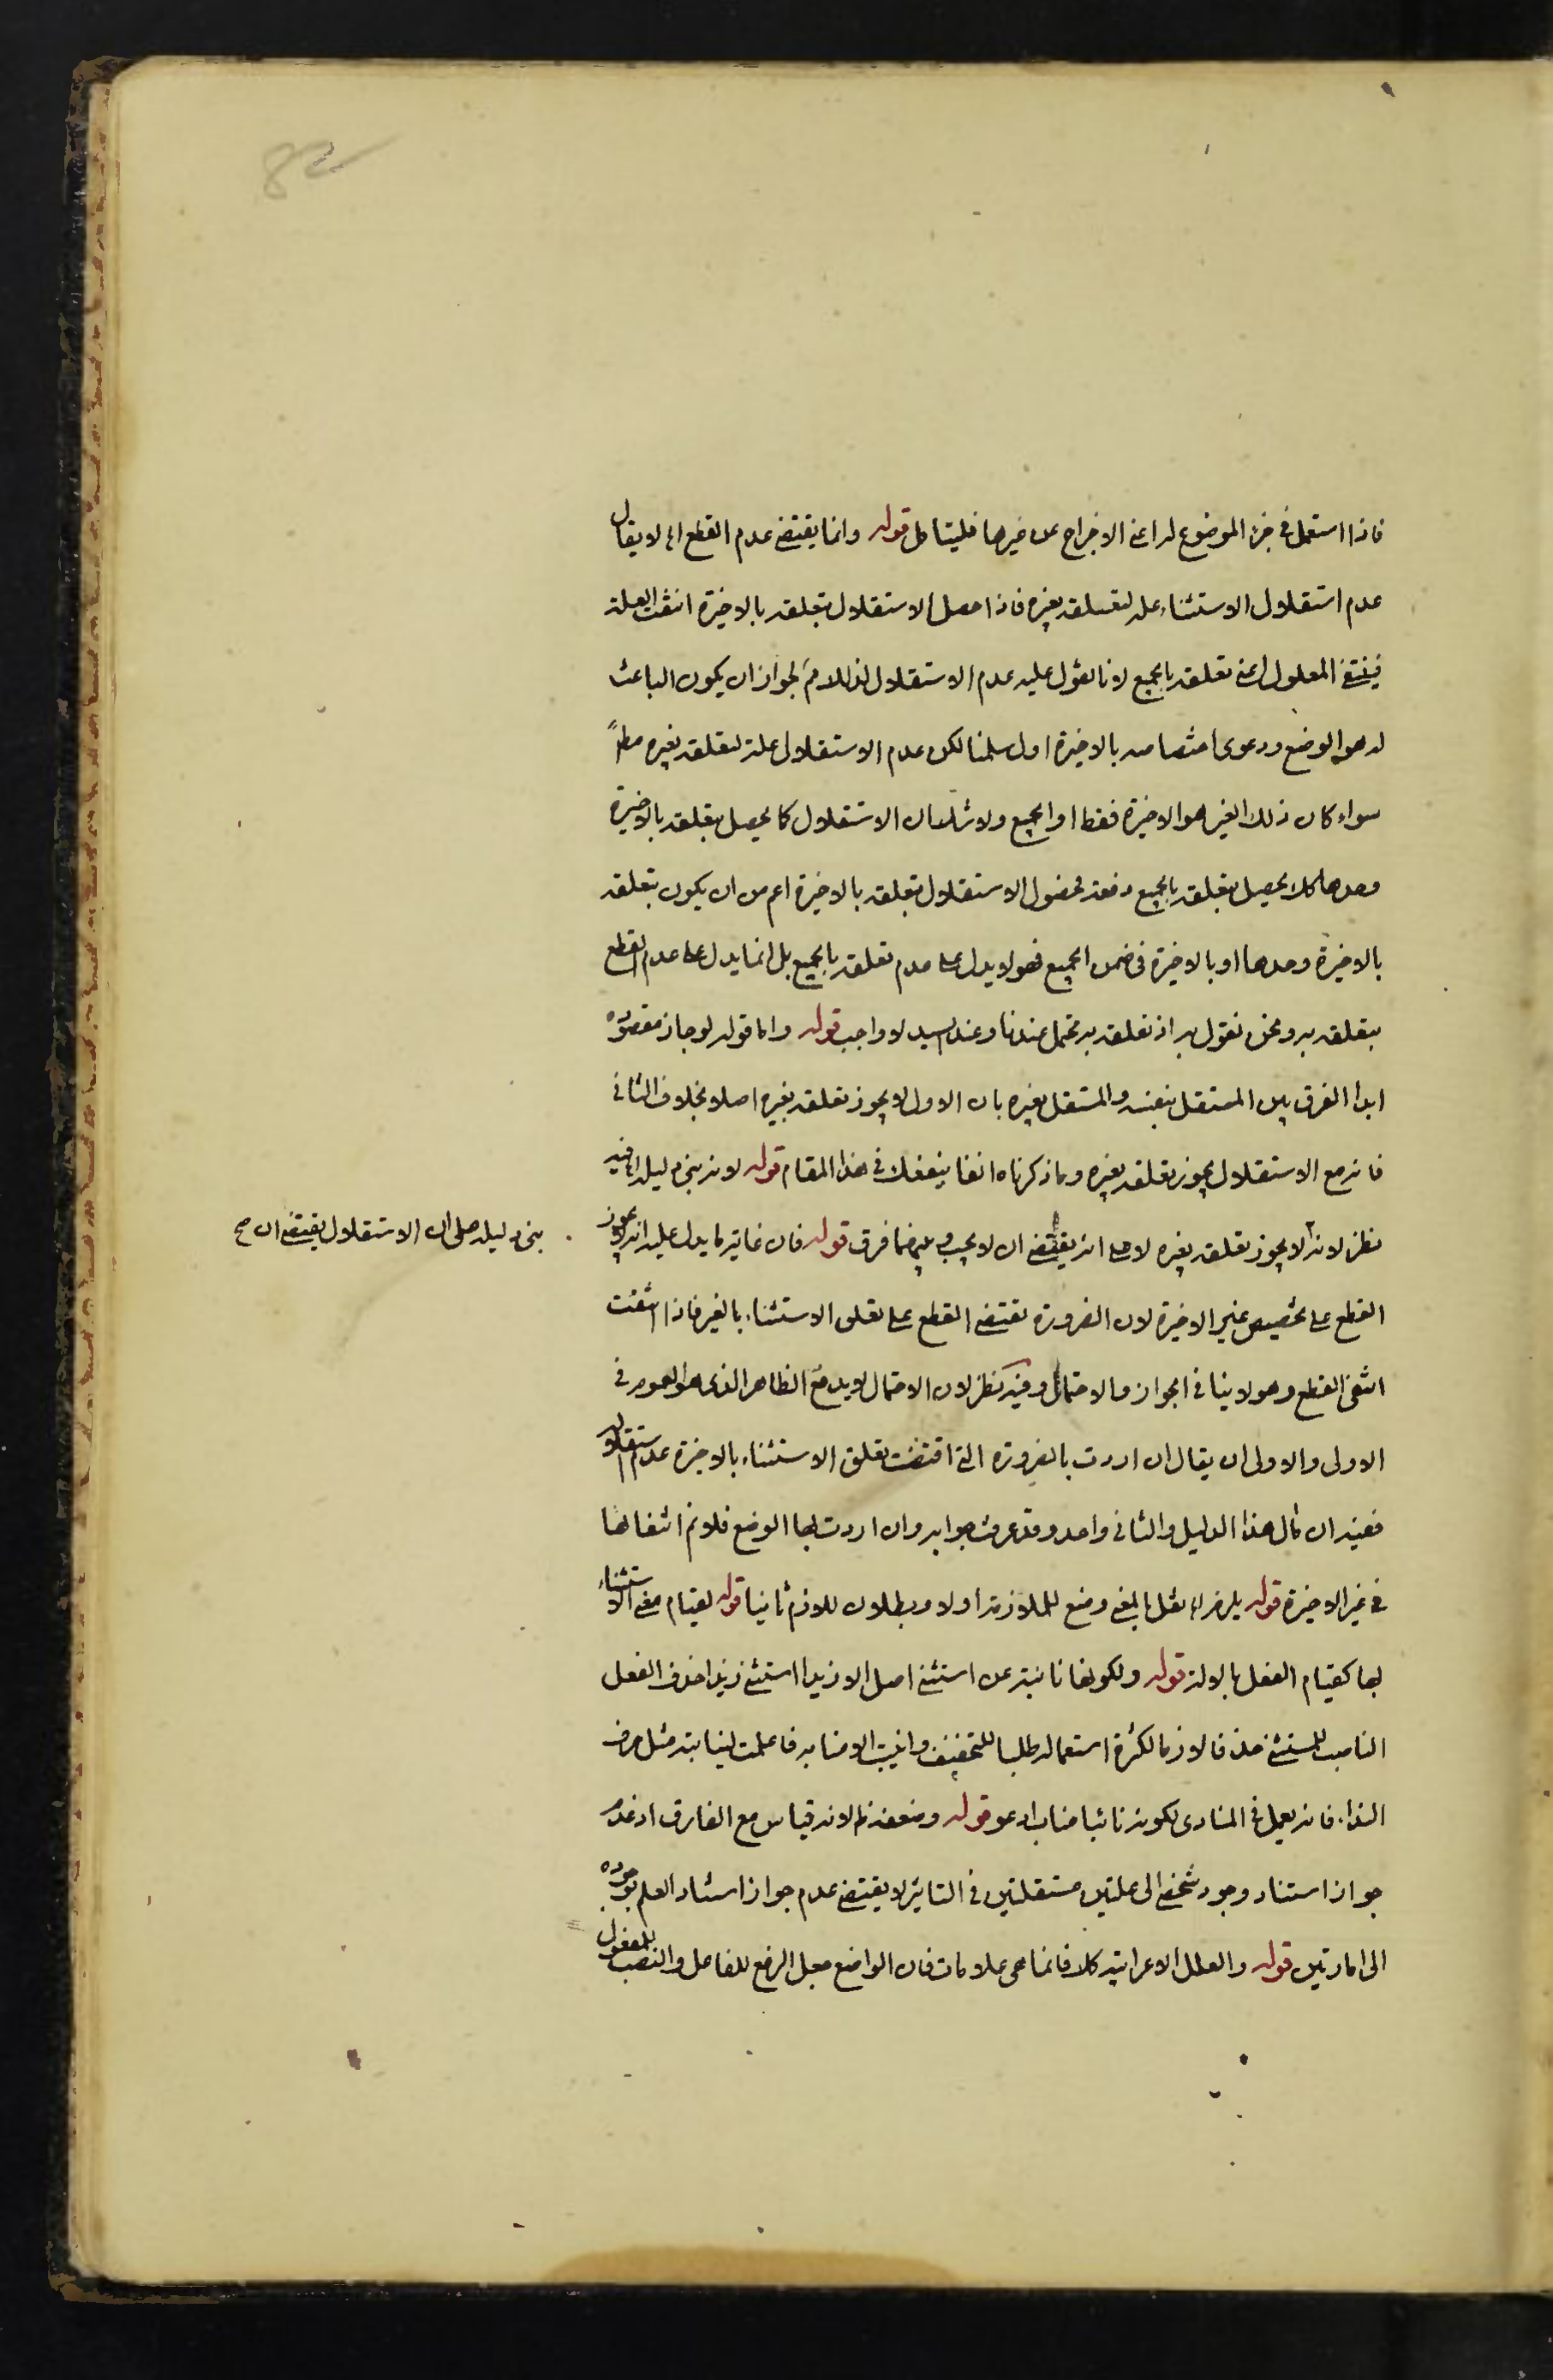 82
فاذا استعمل في جزء الموضوع له اعنى الاخراج عن غيرها فليتامل قوله وانما يقتضى عدم القطع اه لا يقال
عدم استقلال الاستثناء علة لتعلقه بغيره فاذا حصل الاستقلال بتعلقه بالاخيرة انتفت العلة
فينتفى المعلول اعنى تعلقه بالجميع لانا نقول علية عدم الاستقلال لذلك مم لجواز ان يكون الباعث
له هو الوضع ودعوى اختصاصه بالاخيرة اول سلمنا لكن عدم الاستقلال علة لتعلقه بغيره مطاً
سواء كان ذلك الغير هو الاخيرة فقط او الجميع ولا شك ان الاستقلال كما يحصل بتعلقه بالاخيرة
وحدها كك يحصل بتعلقه بالجميع دفعة فحصول الاستقلال بتعلقه بالاخيرة اعم من ان يكون بتعلقه
بالاخيرة وحدها او بالاخيرة في ضمن الجميع فهو لا يدل على عدم تعلقه بالجميع بل انما يدل على عدم القطع
بتعلقه به ونحن نقول به اذ تعلقه به محتمل عندنا وعند السيد لا واجب قوله واما قوله لو جاز مقصوده
ابداء الفرق بين المستقل بنفسه والمستقل بغيره بان الاول لا يجوز تعلقه بغيره اصلا بخلاف الثاني
فانه مع الاستقلال يجوز تعلقه بغيره وما ذكرناه انفا ينفعك في هذا المقام قوله لانه بنى دليله اه فيه
نظر لانه لا يجوز تعلقه بغيره لا على انه يقتضى ان لا يجب وبينهما فرق قوله فان غاية ما يدل عليه انه لا يجوز
بنى دليله على ان الاستقلال يقتضى ان صح
القطع على تخصيص غير الاخيرة لان الضرورة تقتضى القطع على تعلق الاستثناء بالغير فاذا انتفت
انتفى القطع وهو لا ينافي الجواز والاحتمال وفيه نظر لان الاحتمال لا يدفع الظاهر الذى هو العموم في
الاولى والاولى ان يقال ان اردت بالضرورة التى اقتضت تعلق الاستثناء بالاخيرة عدم استقلاله
ففيه ان مآل هذا الدليل والثاني واحد وقد عرفت جوابه وان اردت بها الوضع فلا نم انتفائها
في غير الاخيرة قوله يلزم اه نقل بالمعنى ومنع للملازمة اولا وبطلان للازم ثانيا قوله لقيام معنى الاستثناء
بها كقيام الفعل بالالة قوله ولكونها نائبة عن استثنى اصل الا زيدا استثنى زيدا حذف الفعل
الناصب للمستثنى حذفا لازما لكثرة استعماله طلبا للتخفيف وانيبت الا منابه فاعملت لنيابته مثل حرف
النداء فانه يعمل في المنادى لكونه نائبا مناب ادعو قوله وضعفه ظ لانه قياس مع الفارق اذ عدم
جواز استناد وجود شخص الى علتين مستقلتين في التاثير لا يقتضى عدم جواز استناد العلم بوجوده
الى امارتين قوله والعلل الاعرابية كلا فانما هى علامات فان الواضع جعل الرفع للفاعل والنصب للمفعول